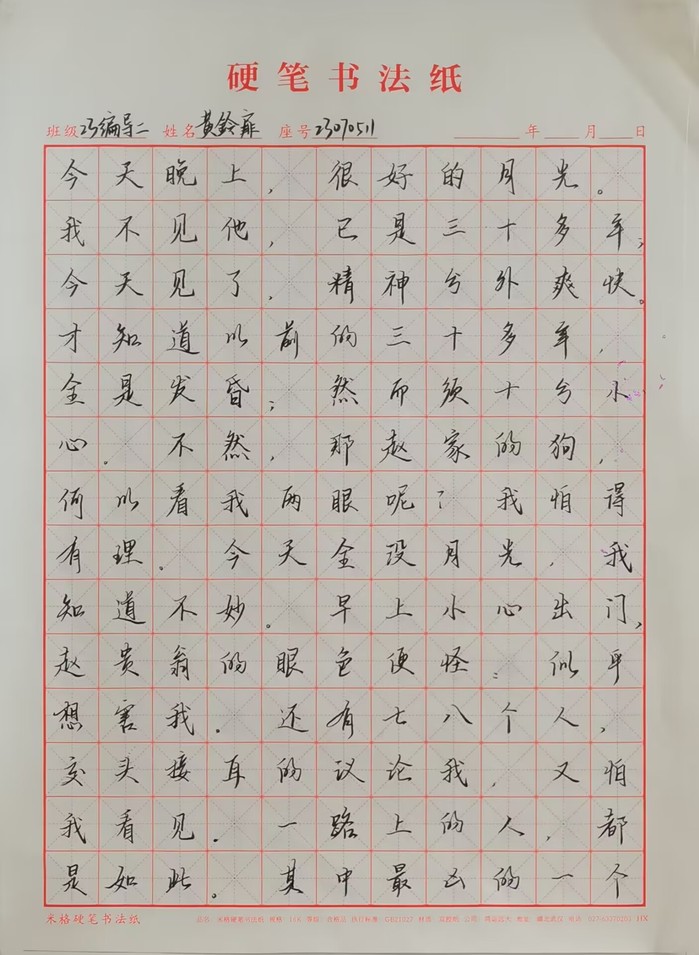 硬笔书法纸
班级 23编导二 姓名 黄铃 座号 23070511 年 月 日
今天晚上，很好的月光。
我不见他，已是三十多年；
今天见了，精神分外爽快。
才知道以前的三十多年，
全是发昏；然而须十分小
心。不然，那赵家的狗，
何以看我两眼呢？我怕得
有理。今天全没月光，我
知道不妙。早上小心出门，
赵贵翁的眼色便怪：似乎
想害我。还有七八个人，
交头接耳的议论我，又怕
我看见。一路上的人，都
是如此。其中最凶的一个
米格硬笔书法纸